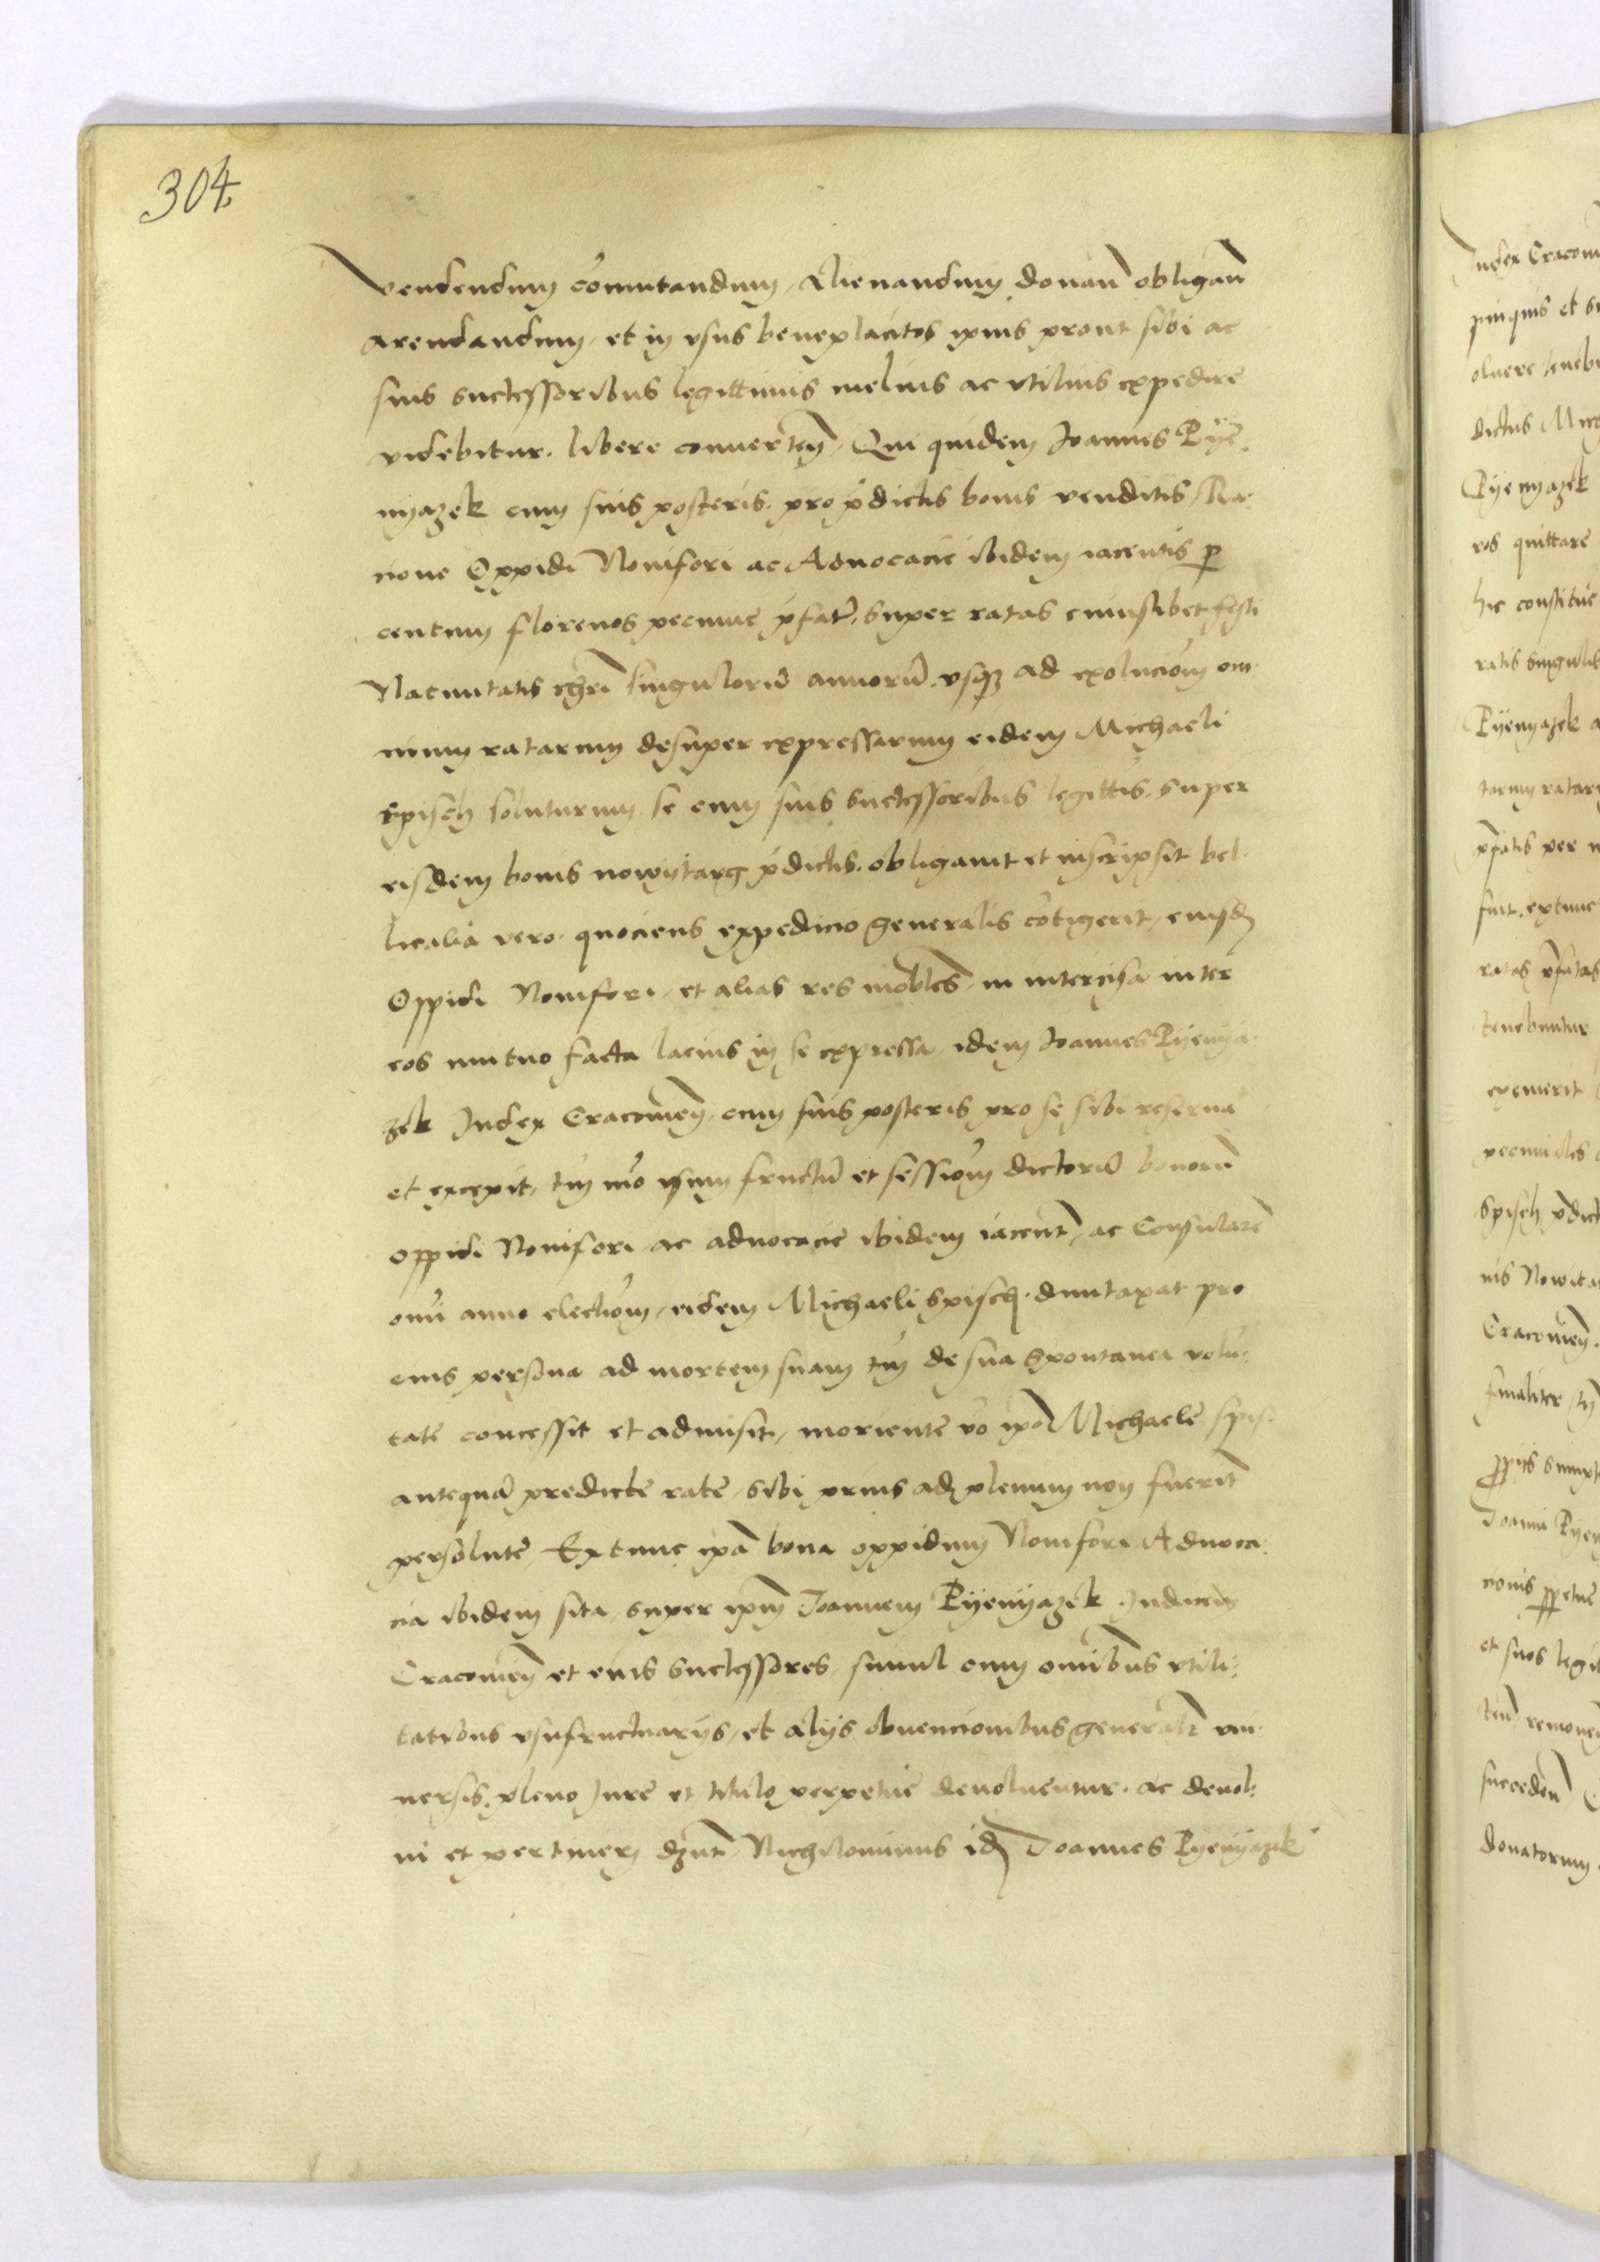 304
Vendendum cōmutandum, Alienandum, donan̄ obligan̄
arendandum, et in vsus beneplacitos ipius prout sibi ac
suis successoribus legittimis melius ac vtilius expedire
videbitur. libere conuerten̄, Qui quidem Joannes Pye
nyązek cum suis posteris, pro p̄dictis bonis venditis, Ra
cione Oppidi Nouifori ac Aduocacie ibidem iacentis p
centum florenos pecunie p̄fat̄, super ratas cuiuslibet festi
Natiuitatis chr̄i singulorū annorū, vsq3 ad exoluciōm om
nium ratarum desuper expressarum eidem Michaeli
Spisch soluturum se cum suis successoribus legitt̄is, super
eisdem bonis nowytarg p̄dictis, obligauit et inscripsit bel
licalia vero quociens expedicio generalis cōtigerit, eiusd̄
Oppidi Nouifori, et alias res mobiles, in intercisa inter
eos mutuo facta lacius in se expressa, idem Joannes Pyenyą
zek Judex Cracouien̄, cum suis posteris pro se sibi reserua
et excepit, tn̄ vō vsum fructū et sessiōm dictorū bonorū
oppidi Nouifori ac aduocacie ibidem iacent̄, ac Consularē
om̄i anno electiōm, eidem Michaeli Spisch, duntaxat pro
eius persona ad mortem suam tn̄ de sua spontanea volū
tate concessit et admisit, moriente vō ip̄o Michaele Spis
antequā predicte rate, sibi prius ad plenum non fuerint
persolute, Extunc ip̄a bona oppidum Nouifori, Aduoca
cia ibidem sita, super ip̄m Joannem Pyenyązek Judicem
Cracouien̄ et eius successores, simul cum om̄ibus vtili
tatibus vsufructuarys, et alys obuencionibus generalr̄ vni
uersis, pleno Jure et titulo perpetue deuoluentur, ac deuol
ui et pertinere dn̄t, Nichilominus id̄ Joannes Pyenyązek
Judex Cracoui
oluere tenebu
dictus Mich
Pyenyązek
ros quittare
hic constitue
ratis singulis
Pyenyązek a
tarum ratar
p̄fatis per
fuit, extunc
ratas p̄fatas
tenebuntur
exemerit
Spisch p̄dict
nis Nowita
Cracouien̄
Joanni Pyeny
et suos legit
succeden̄
donatorum